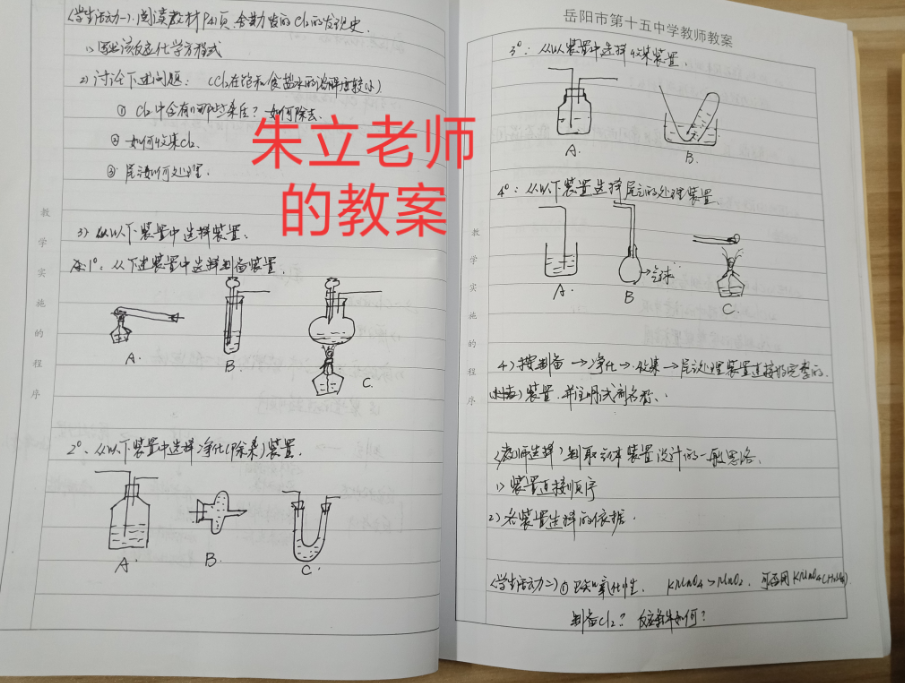 <学生活动一>阅读教材P41页,舍勒发的Cl₂的发现史.
1) 写出该反应化学方程式
2) 讨论下述问题: (Cl₂在饱和食盐水的溶解度较小)
① Cl₂中含有哪些杂质? 如何除去.
② 如何收集Cl₂.
③ 尾气如何处理.
3) 从以下装置中选择装置.
1°. 从下述装置中选择制备装置.
A.
B.
C.
2°、从以下装置中选择净化(除杂)装置.
A.
B.
C.
教学实施的程序
朱立老师
的教案
岳阳市第十五中学教师教案
3°: 从以装置中选择收集装置.
A.
B.
4°: 从以下装置选择尾气的处理装置
A.
B
气球
C.
4) 按制备→净化→收集→尾气处理装置连接好完整的
装置,并注明试剂名称.
<教师选择>制取气体装置设计的一般思路.
1) 装置连接顺序
2) 各装置选择的依据.
<学生活动二>① 已知氧化性. KMnO₄>MnO₂. 可否用KMnO₄
制备Cl₂? 反应条件如何?
教学实施的程序